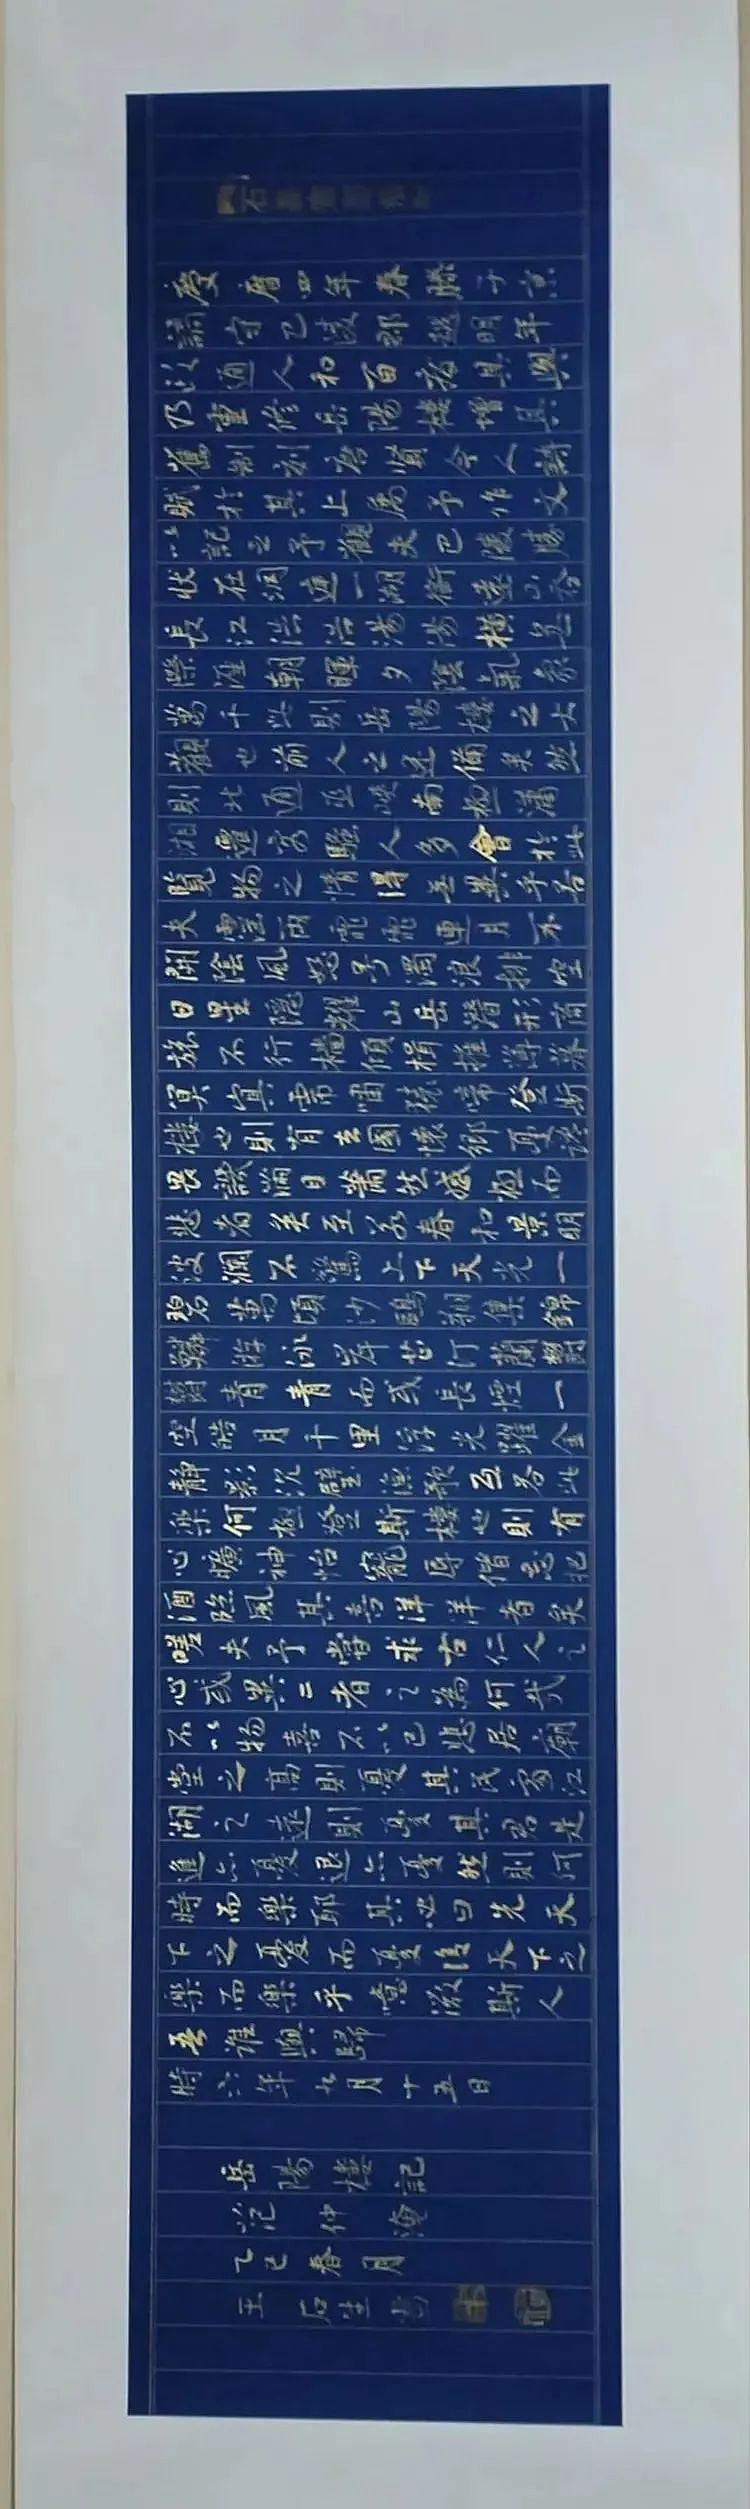 慶曆四年春滕子京
謫守巴陵郡越明年
政通人和百廢具興
乃重修岳陽樓增其
舊制刻唐賢今人詩
賦於其上屬予作文
以記之予觀夫巴陵勝
狀在洞庭一湖銜遠山吞
長江浩浩湯湯橫無
際涯朝暉夕陰氣象
萬千此則岳陽樓之大
觀也前人之述備矣然
則北通巫峽南極瀟
湘遷客騷人多會於此
覽物之情得無異乎若
夫霪雨霏霏連月不
開陰風怒号濁浪排空
日星隱耀山岳潛形商
旅不行檣傾楫摧薄暮
冥冥虎嘯猿啼登斯
樓也則有去國懷鄉憂讒
畏譏滿目蕭然感極而
悲者矣至若春和景明
波瀾不驚上下天光一
碧萬頃沙鷗翔集錦
鱗游泳岸芷汀蘭鬱
鬱青青而或長煙一
空皓月千里浮光躍金
靜影沉璧漁歌互答此
樂何極登斯樓也則有
心曠神怡寵辱偕忘把
酒臨風其喜洋洋者矣
嗟夫予嘗求古仁人之
心或異二者之為何哉
不以物喜不以己悲居廟
堂之高則憂其民處江
湖之遠則憂其君是
進亦憂退亦憂然則何
時而樂耶其必曰先天
下之憂而憂後天下之
樂而樂乎噫微斯人
吾誰與歸
時六年九月十五日
岳陽樓記
范仲淹
乙巳春月
王石生